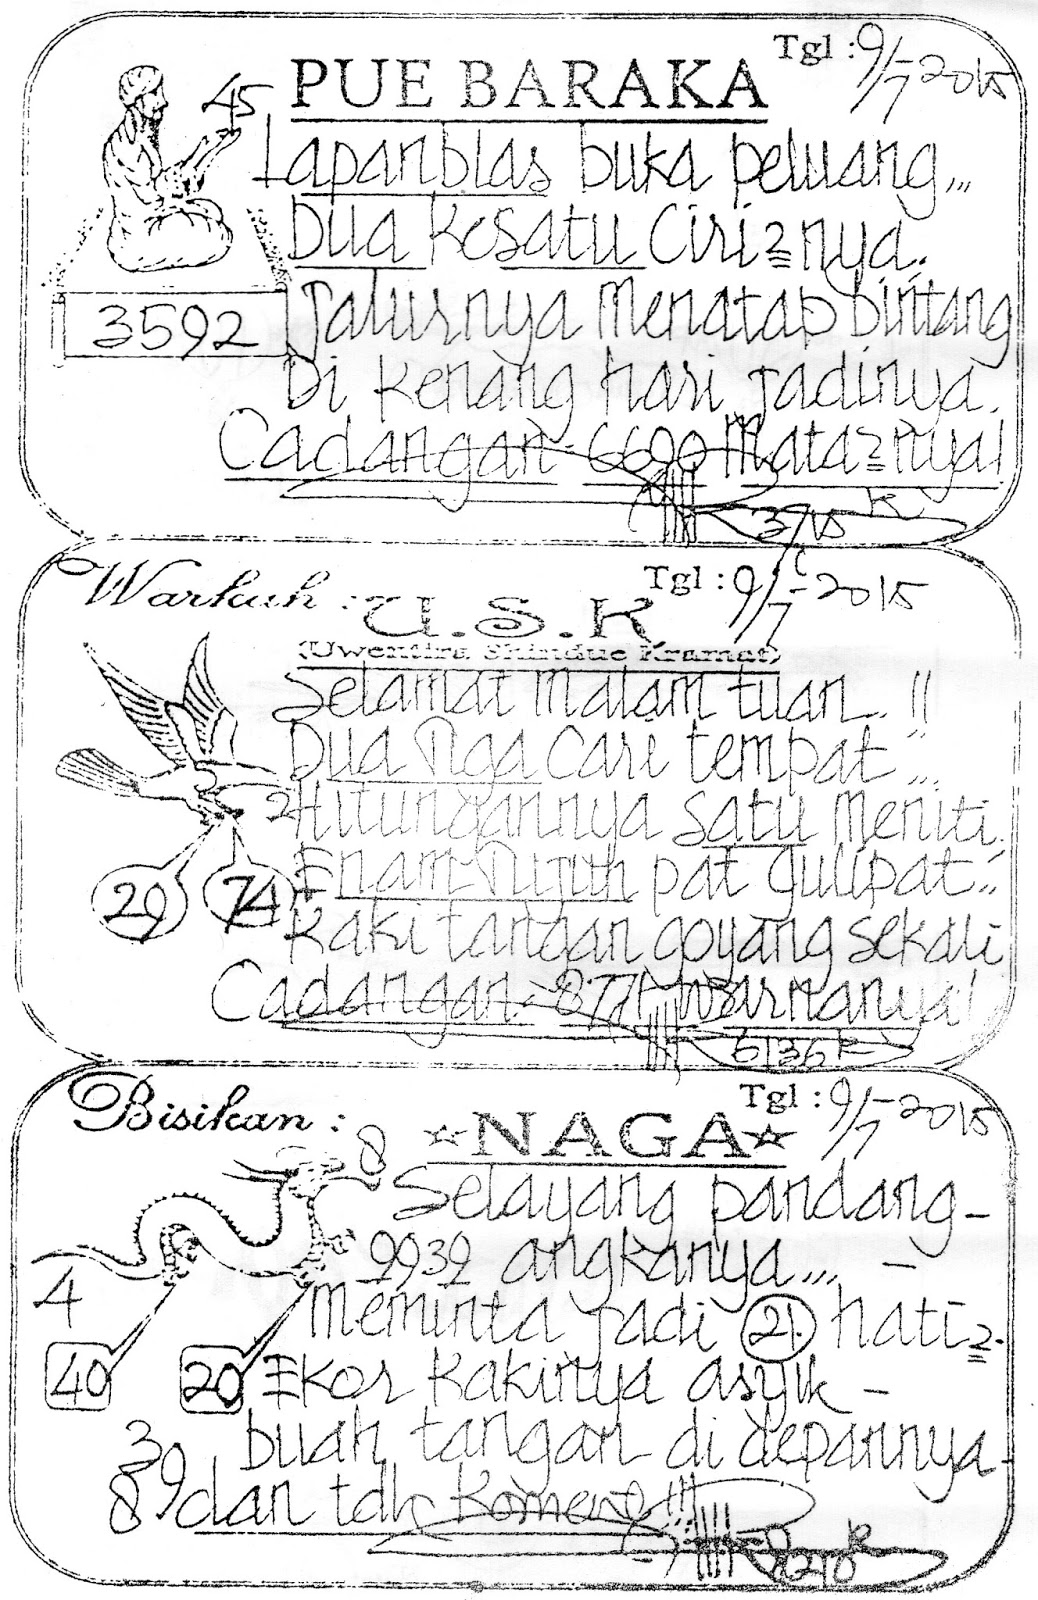 Tgl : 9/7-2015
PUE BARAKA
45
Lapanblas buka peluang...
Dua kesatu Ciri2nya.
3592
Jalurnya Menatap bintang
Di kenang hari jadinya.
Cadangan- 6690 Mata2nya!
Tgl : 9/7-2015
Warkuh : U.S.K
(Uwentira Shindue Kramat)
Selamat Malam tuan.!!
Dua Tiga Cari tempat...
2
Hitungannya satu Meniti.
29 74
Enam Tujuh pat gulipat..
Kaki tangan goyang sekali
Cadangan- 8771 Warnanya!
6136
Tgl : 9/7-2015
Bisikan : NAGA
8
Selayang pandang-
9939 angkanya... -
4
Meminta jadi 21. hati2.
40 20
Ekor kakinya asyik -
buah tangan di depannya-
39
89
dan tdk Komen!!!